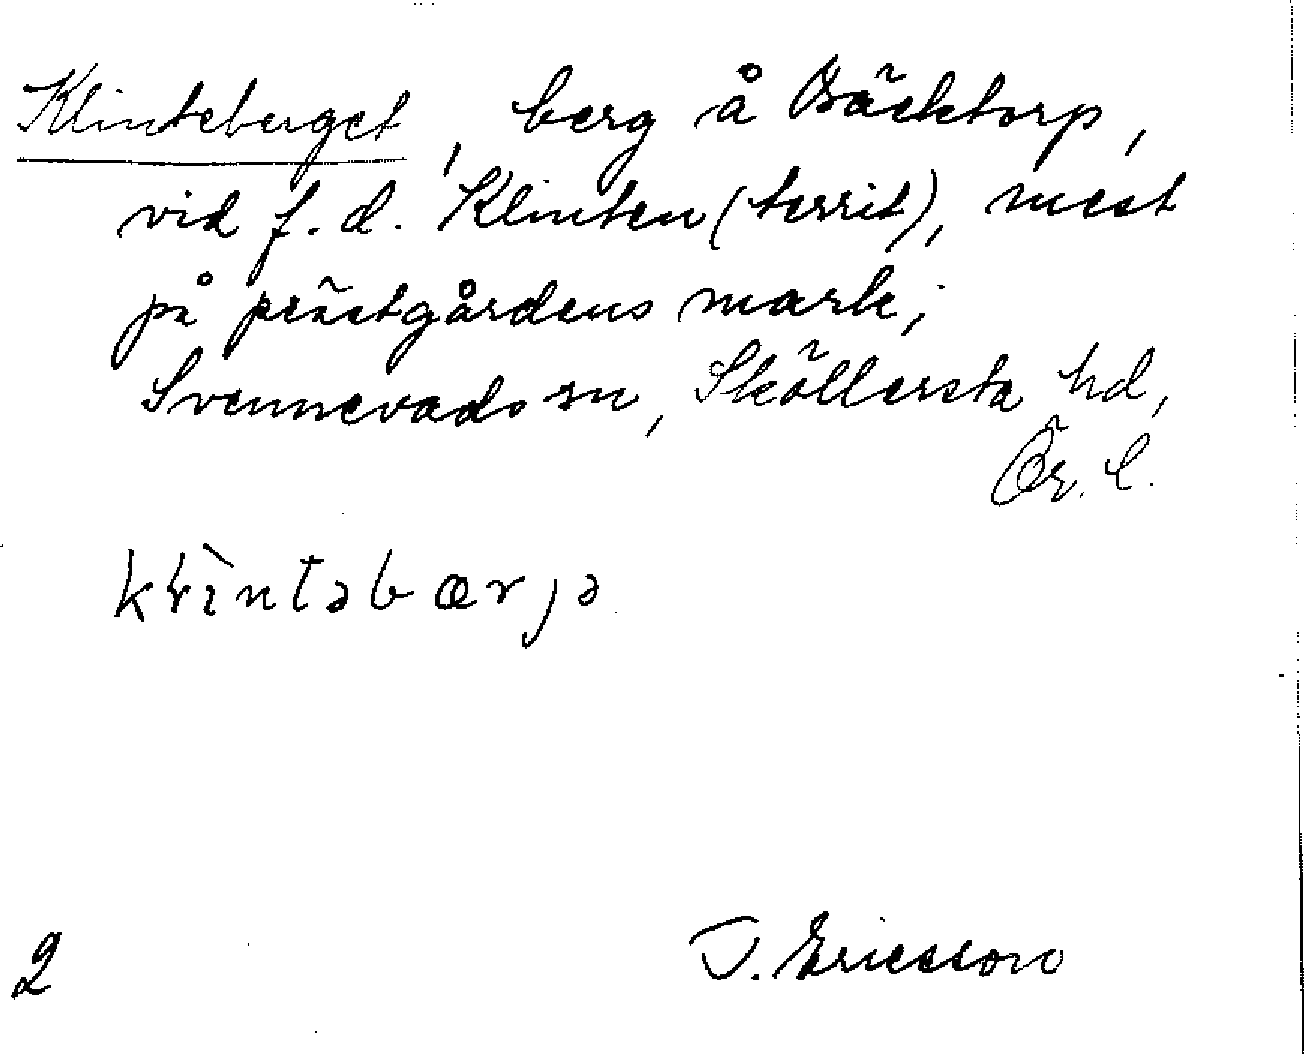 Klinteberget, berg å Bäcktorp,
vid f.d. Klinten (territ), mest
på prästgårdens mark;
Svennevads sn, Sköllersta hd,
Ör. l.
klìntəbærjə
2 J. Ericsson